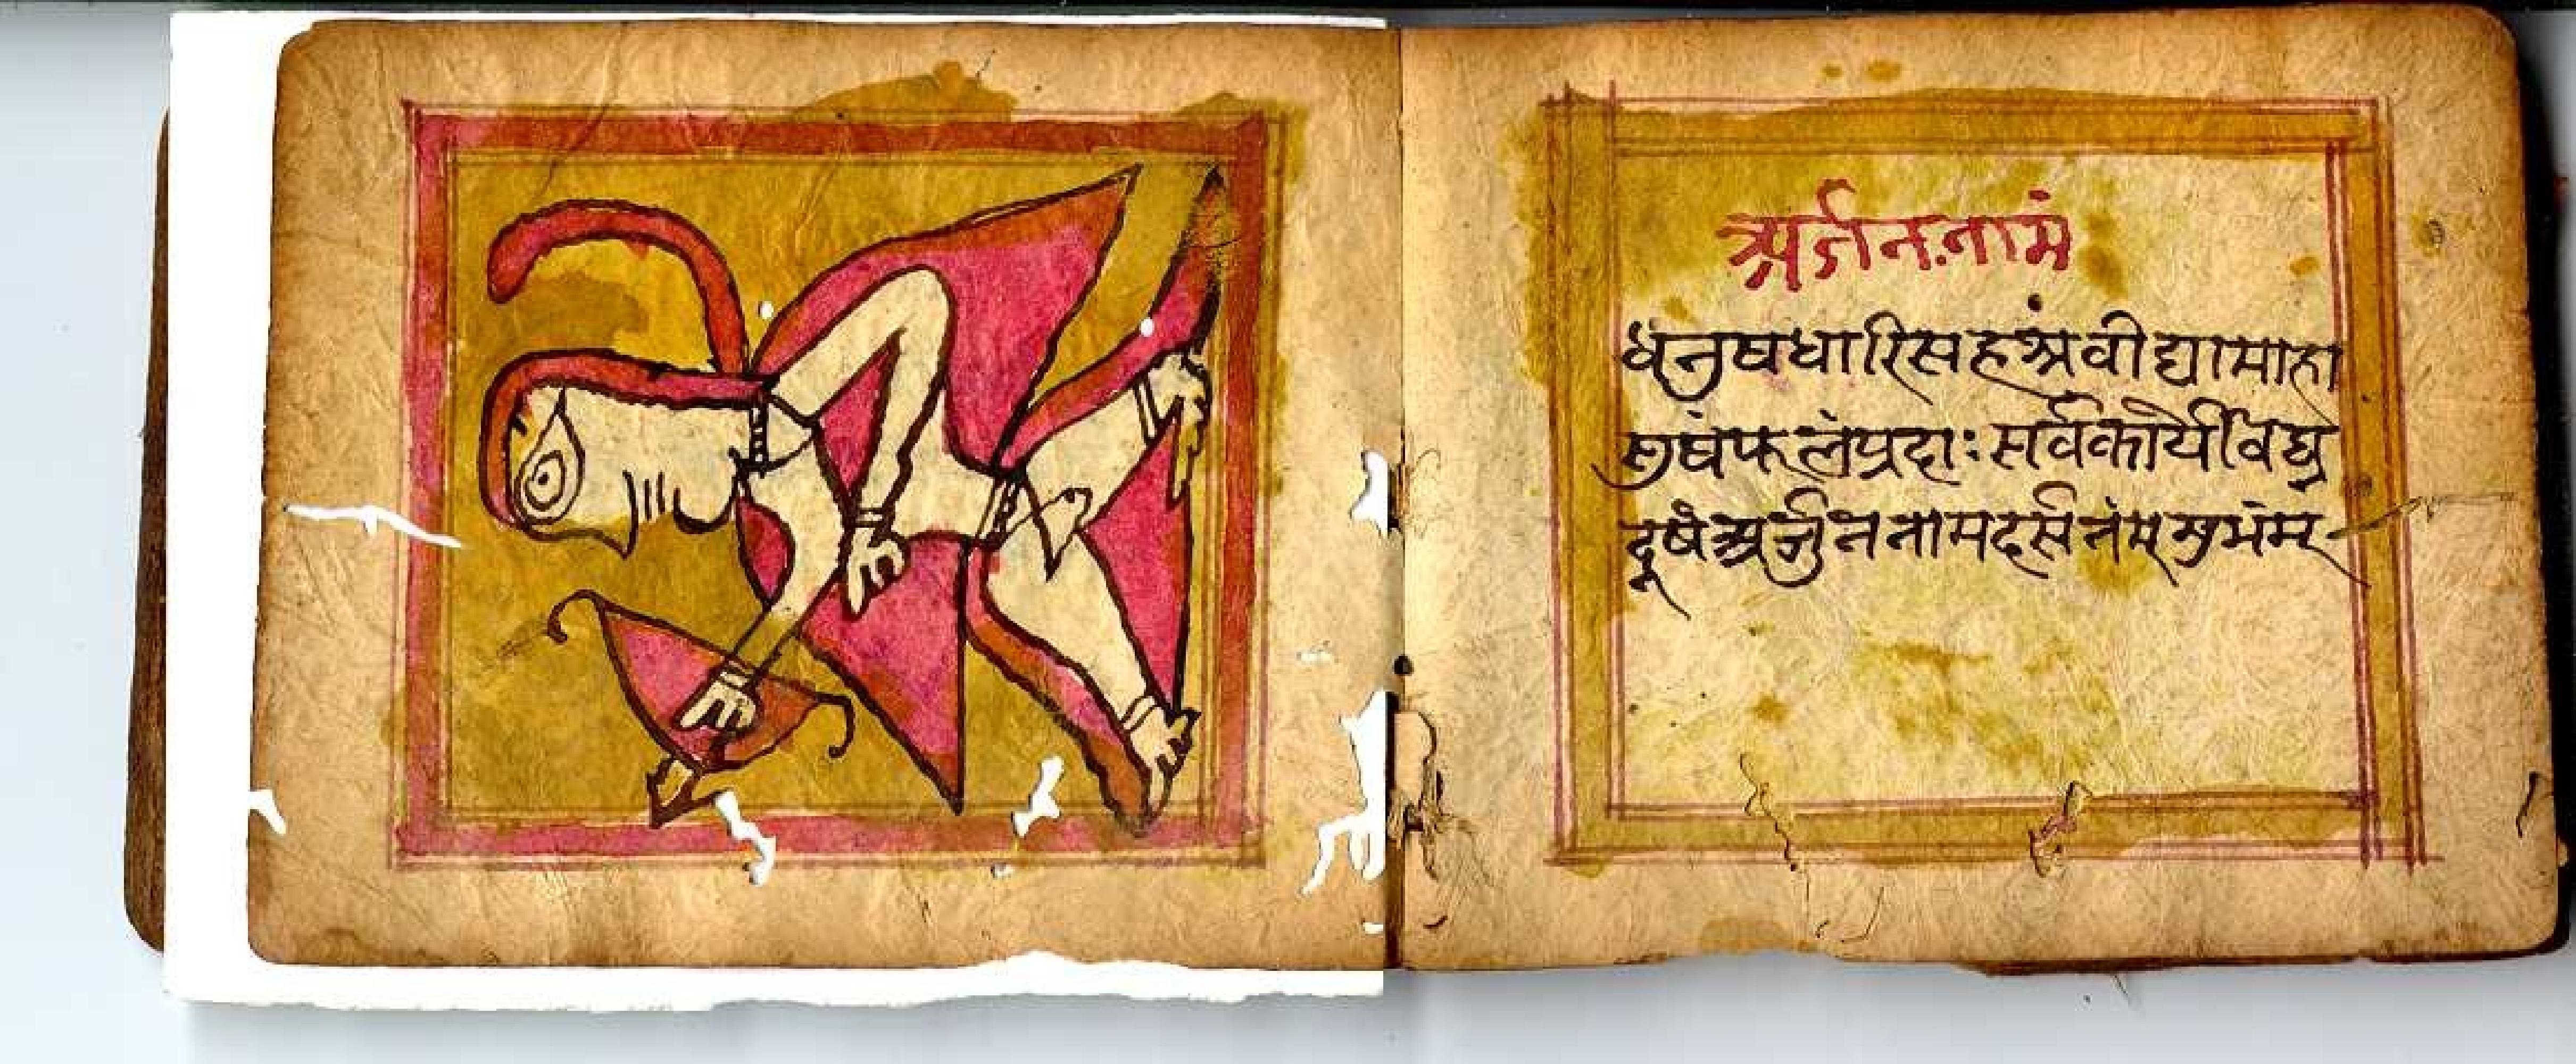 अर्जन.नामं
धनुषधारिसहश्रंवीद्यामाहा
सुषंफलंप्रदाः सर्वकार्यीवघ्न
दूषंअर्जुननामदर्सनंम्सुभंम्